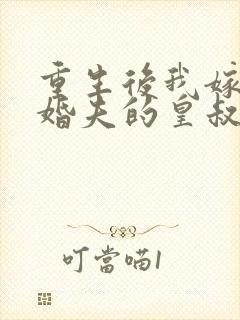 重生後我嫁
婚夫的皇叔
叮當喵1